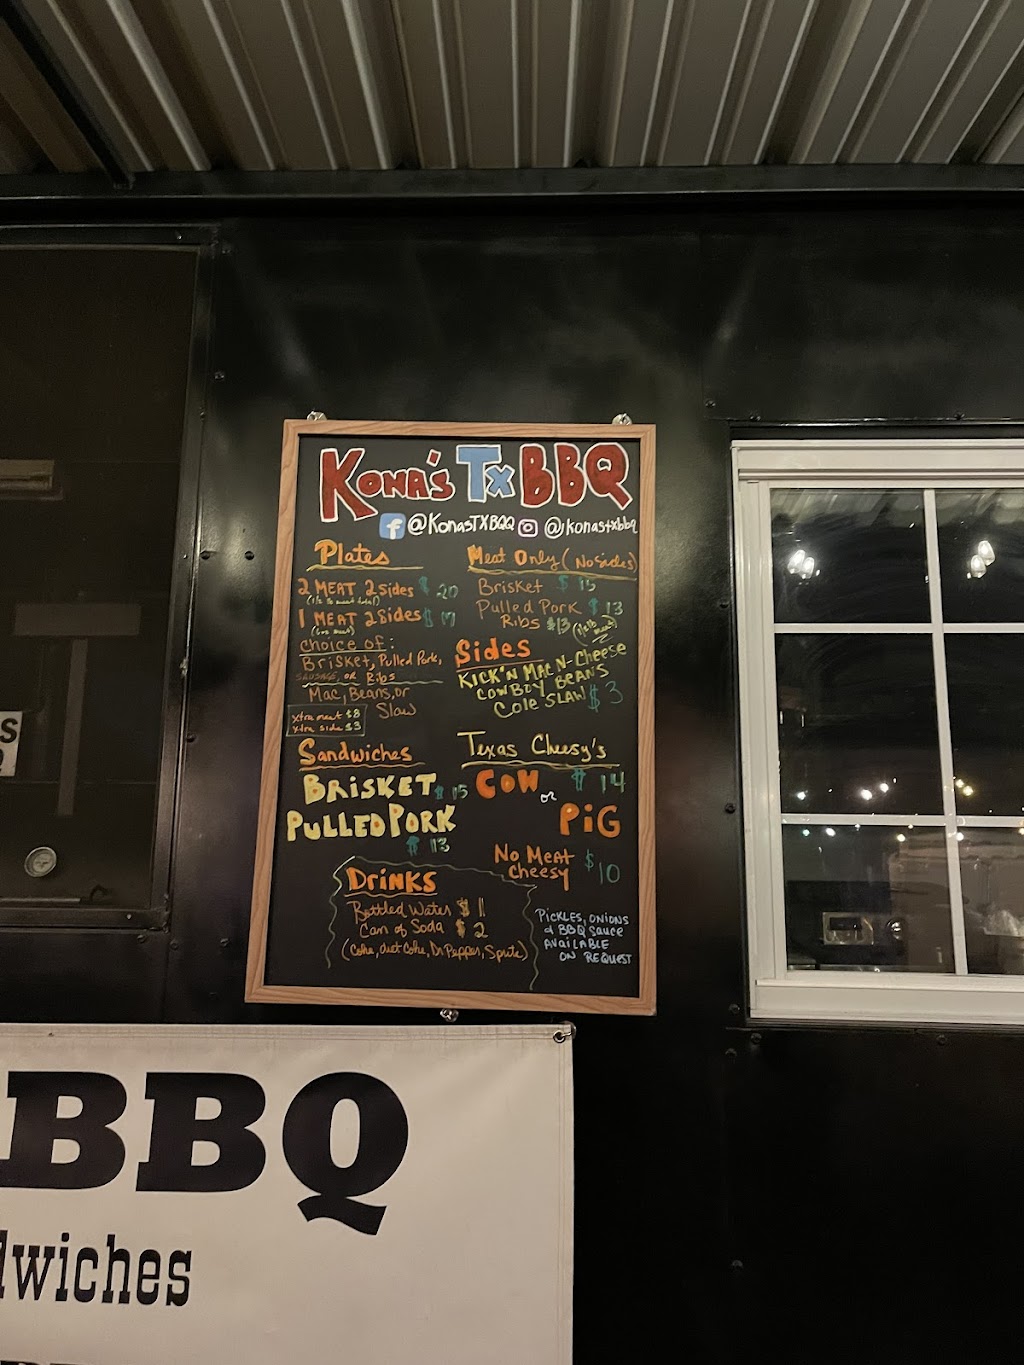 Kona's Tx BBQ
@KonasTXBBQ @konastxbbq
Plates
2 MEAT 2 Sides $ 20
(1/2 lb meat total)
1 MEAT 2 Sides $ 17
choice of:
Brisket, Pulled Pork,
SAUSAGE, OR Ribs
Mac, Beans, or
Slaw
Xtra meat $8
Xtra side $3
Meat Only (No Sides)
Brisket $ 15
Pulled Pork $ 13
Ribs $13 (1/2 lb meat)
Sides
KICK'N MAC N-Cheese
COWBOY BEANS
Cole SLAW $3
Sandwiches
BRiSKET $ 15
PULLED PORK
$ 13
Texas Cheesy's
COW $ 14
or
PiG
No Meat $10
Cheesy
DriNKS
Bottled Water $ 1
Can of Soda $ 2
(Coke, diet Coke, Dr Pepper, Sprite)
PICKLES, ONIONS
& BBQ SAUCE
AVAILABLE
ON REQUEST
S
BBQ
dwiches